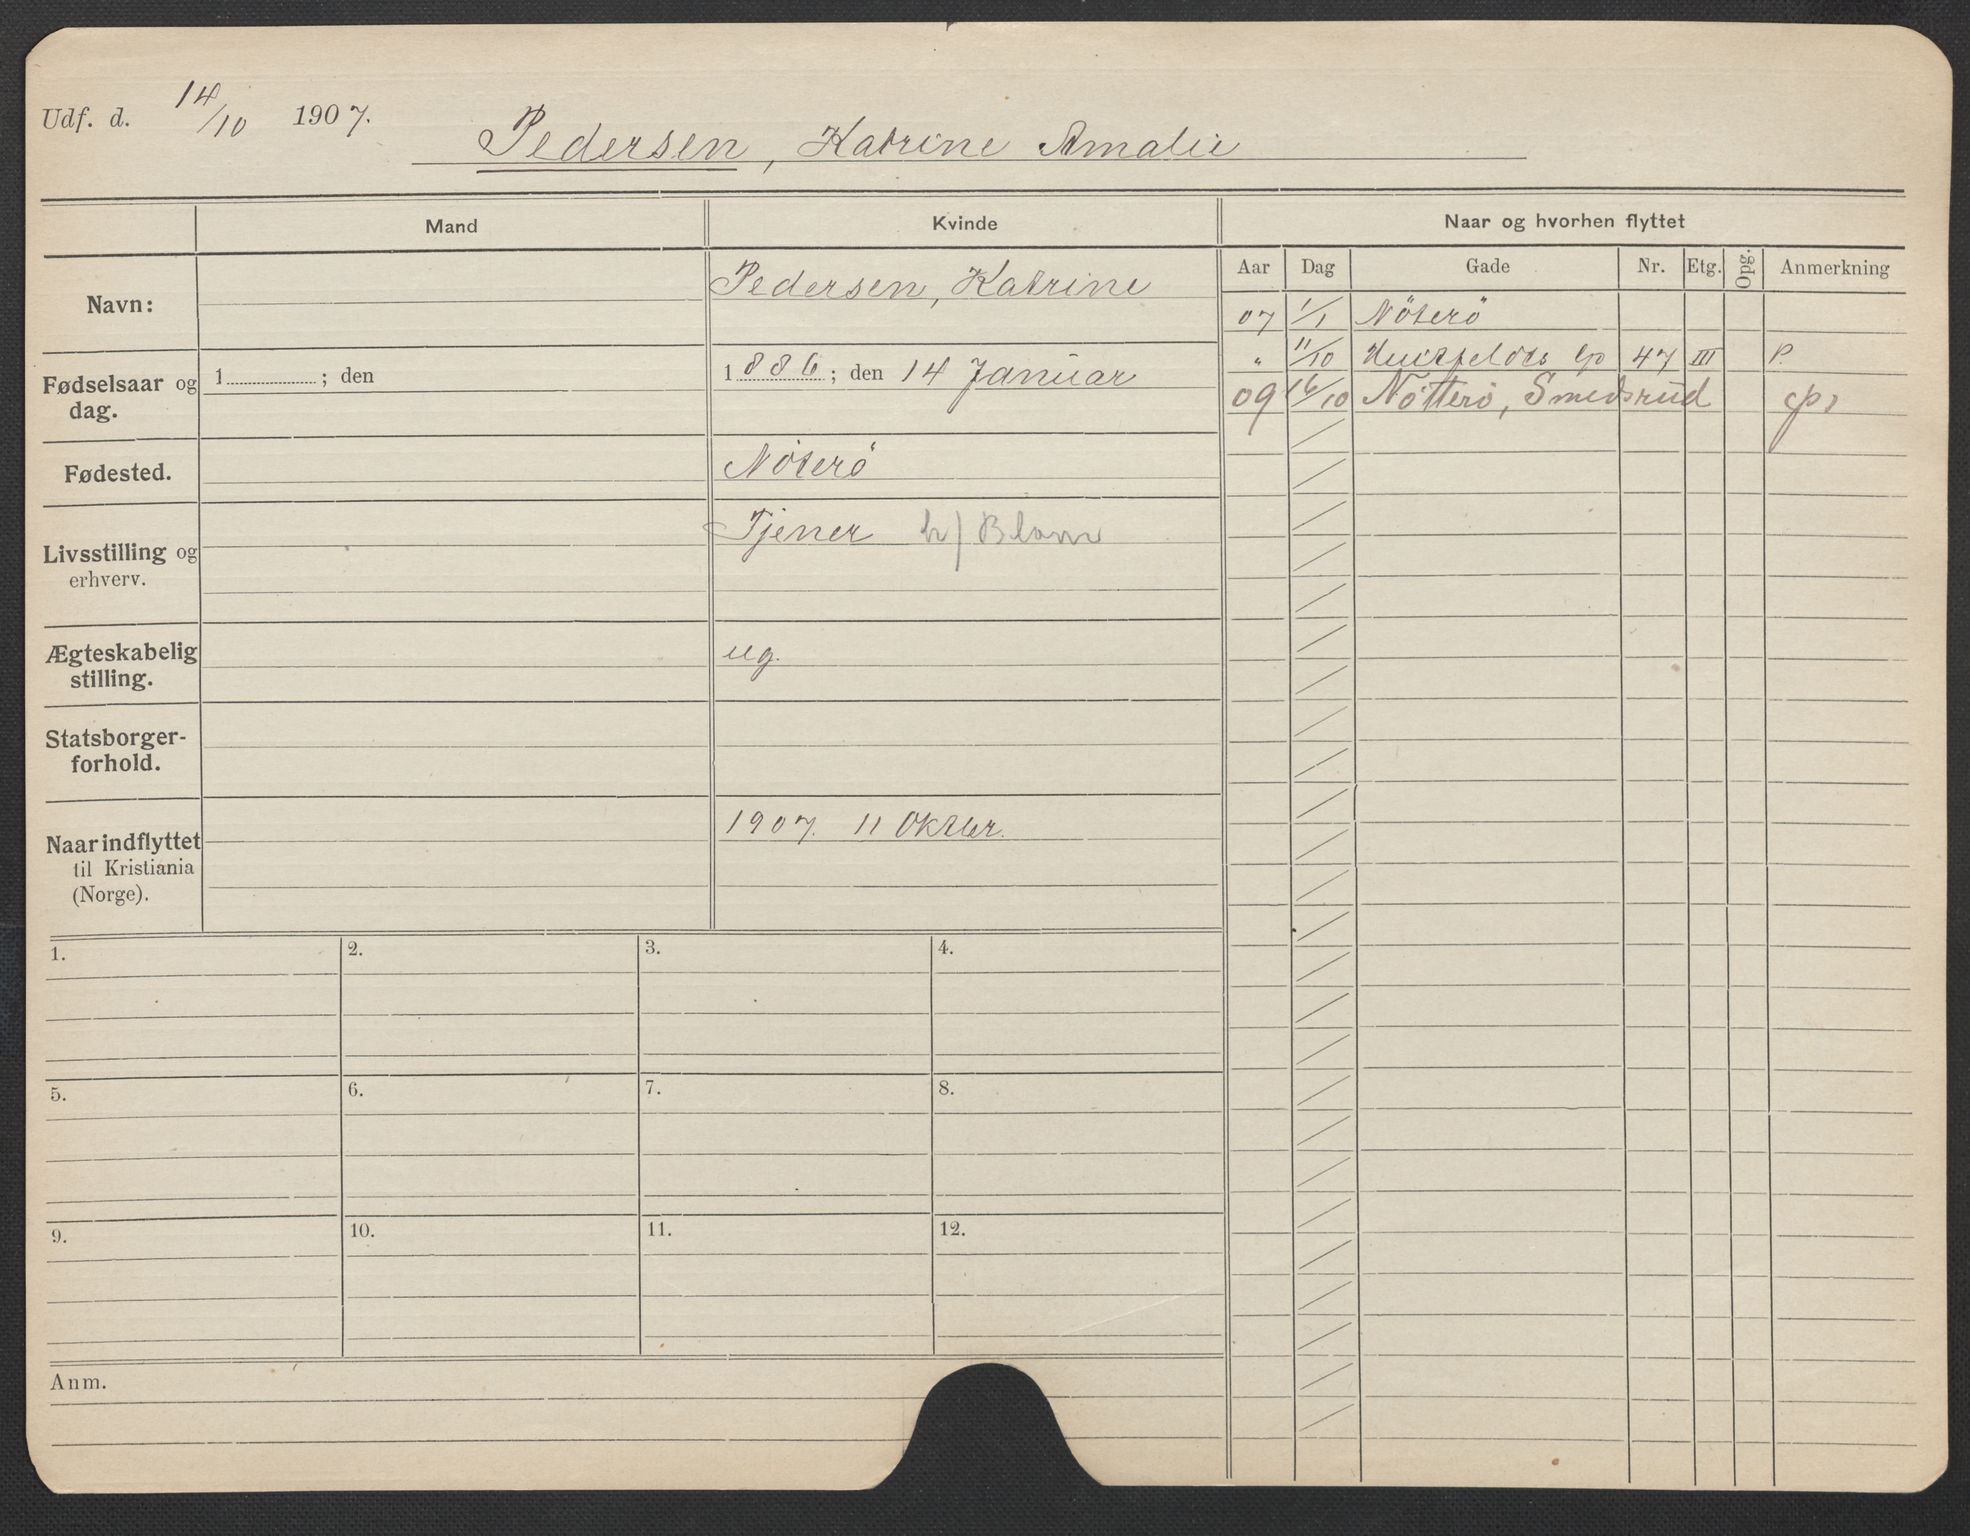 Udf. d. 14/10 1907.
Pedersen, Katrine Amalie
Mand
Kvinde
Naar og hvorhen flyttet
Aar Dag Gade Nr. Etg. Opg. Anmerkning
Navn:
Pedersen, Katrine
07 1/1 Nöterö
" 11/10 47 III P.
09 16/10 Nötterö, Smedsrud
Fødselsaar og
dag.
1 ; den
1886; den 14 Januar
Fødested.
Nöterö
Livsstilling og
erhverv.
Tjener h/ Blom
Ægteskabelig
stilling.
ug.
Statsborger-
forhold.
Naar indflyttet
til Kristiania
(Norge).
1907. 11 Oktbr.
1. 2. 3. 4.
5. 6. 7. 8.
9. 10. 11. 12.
Anm.